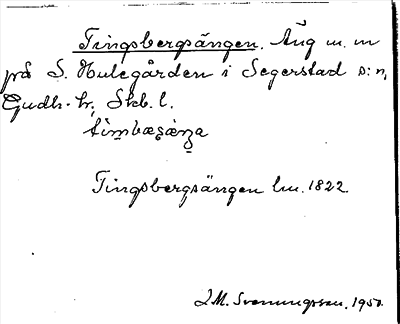 Tingsbergsängen. Äng m. m
på S. Hulegården i Segerstad s:n,
Gudh. hr, Skb. l.
tim̥bæʂæŋa
Tingsbergsängen lm. 1822.
J.M. Svenungsson. 1950